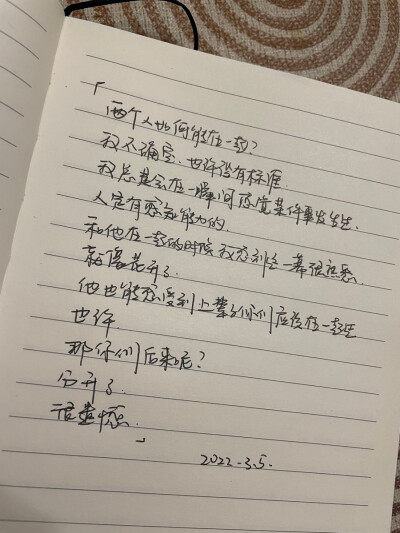 「
两个人如何能在一起?
我不确定.也许没有标准.
我总是会在一瞬间感觉某件事发生.
人是有感知能力的.
和他在一起的时候我感到这一幕很熟悉.
就像花开了.
他也能感受到上辈子你们应该在一起
也许
那你们后来呢?
分开了.
很遗憾.
」
2022-3.5.